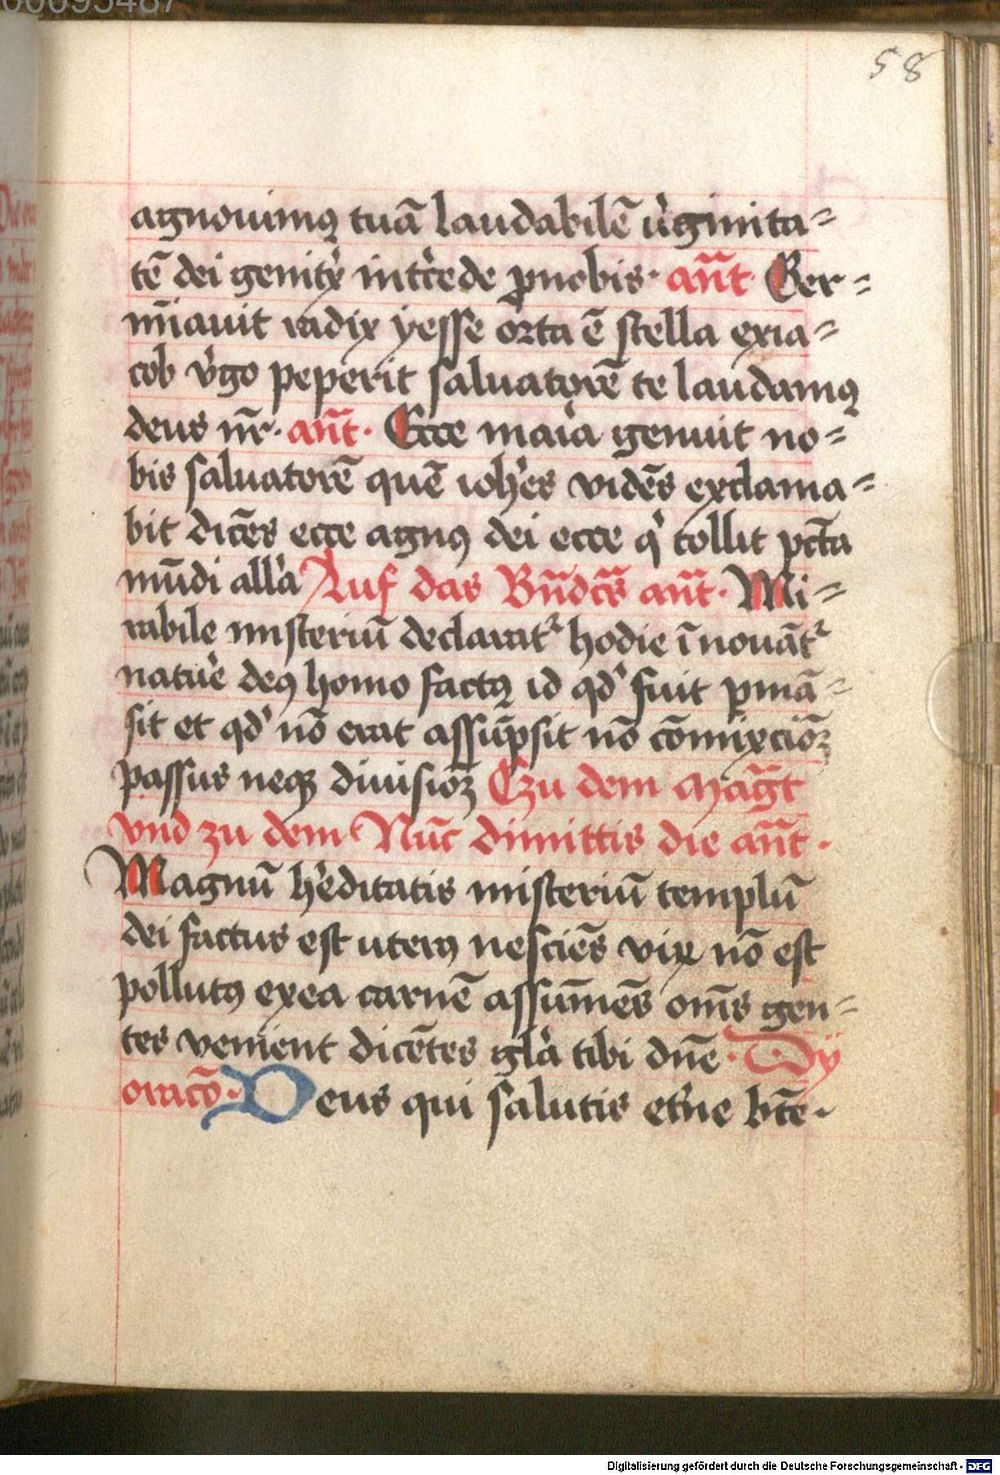 58
agnouimꝰ tuā laudabilē v̾ginita⸗
tē dei genitͥx int̾cede ꝓnobis· an̄t· Ger⸗
mīauit radix yesse orta ē stella exia⸗
cob v̾go peperit saluatorē te laudamꝰ
deus nr̄· an̄t· Ecce maͥa genuit no⸗
bis saluatorē quē ioh̾es vidēs exclama⸗
bit dicēs ecce agnꝰ dei ecce qͥ tollit pctā
mūdi all̾a Auf das Bn̄dcs̄ an̄t· Mi⸗
rabile misteriū declaratᷣ hodie īnouātᷣ
natuͬe deꝰ homo factꝰ id qd̾ fuit ꝑmā⸗
sit et qd̾ nō erat assūpsit nō cōmixcioꝫ
passus neqꝫ diuisioꝫ Czu dem magt̄
vnd zu dem Nūc dimittis die an̄t·
Magnū h̾editatis misteriū templū
dei factus est uterꝰ nesciēs viꝝ nō est
pollutꝰ exea carnē assūmēs om̄s gen⸗
tes venient dicētes gl̾a tibi dn̄e· Dy
oracō· Deus qui salutis et̾ne btē·
Digitalisierung gefördert durch die Deutsche Forschungsgemeinschaft - DFG